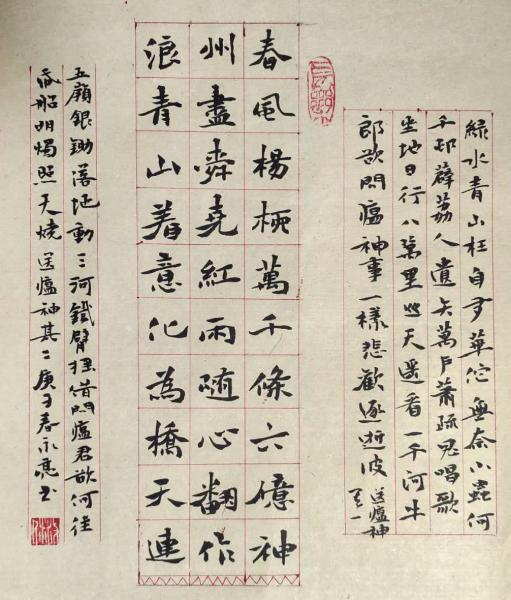 綠水青山枉自多華佗無奈小蟲何
千邨薜荔人遺矢萬戶蕭疏鬼唱歌
坐地日行八萬里巡天遥看一千河牛
郎欲問瘟神事一樣悲歡逐逝波 送瘟神
其一
春風楊柳萬千條六億神
州盡舜堯紅雨随心翻作
浪青山着意化為橋天連
五嶺銀鋤落地動三河鐵臂摇借問瘟君欲何往
紙船明燭照天燒 送瘟神其二 庚子春永亮书